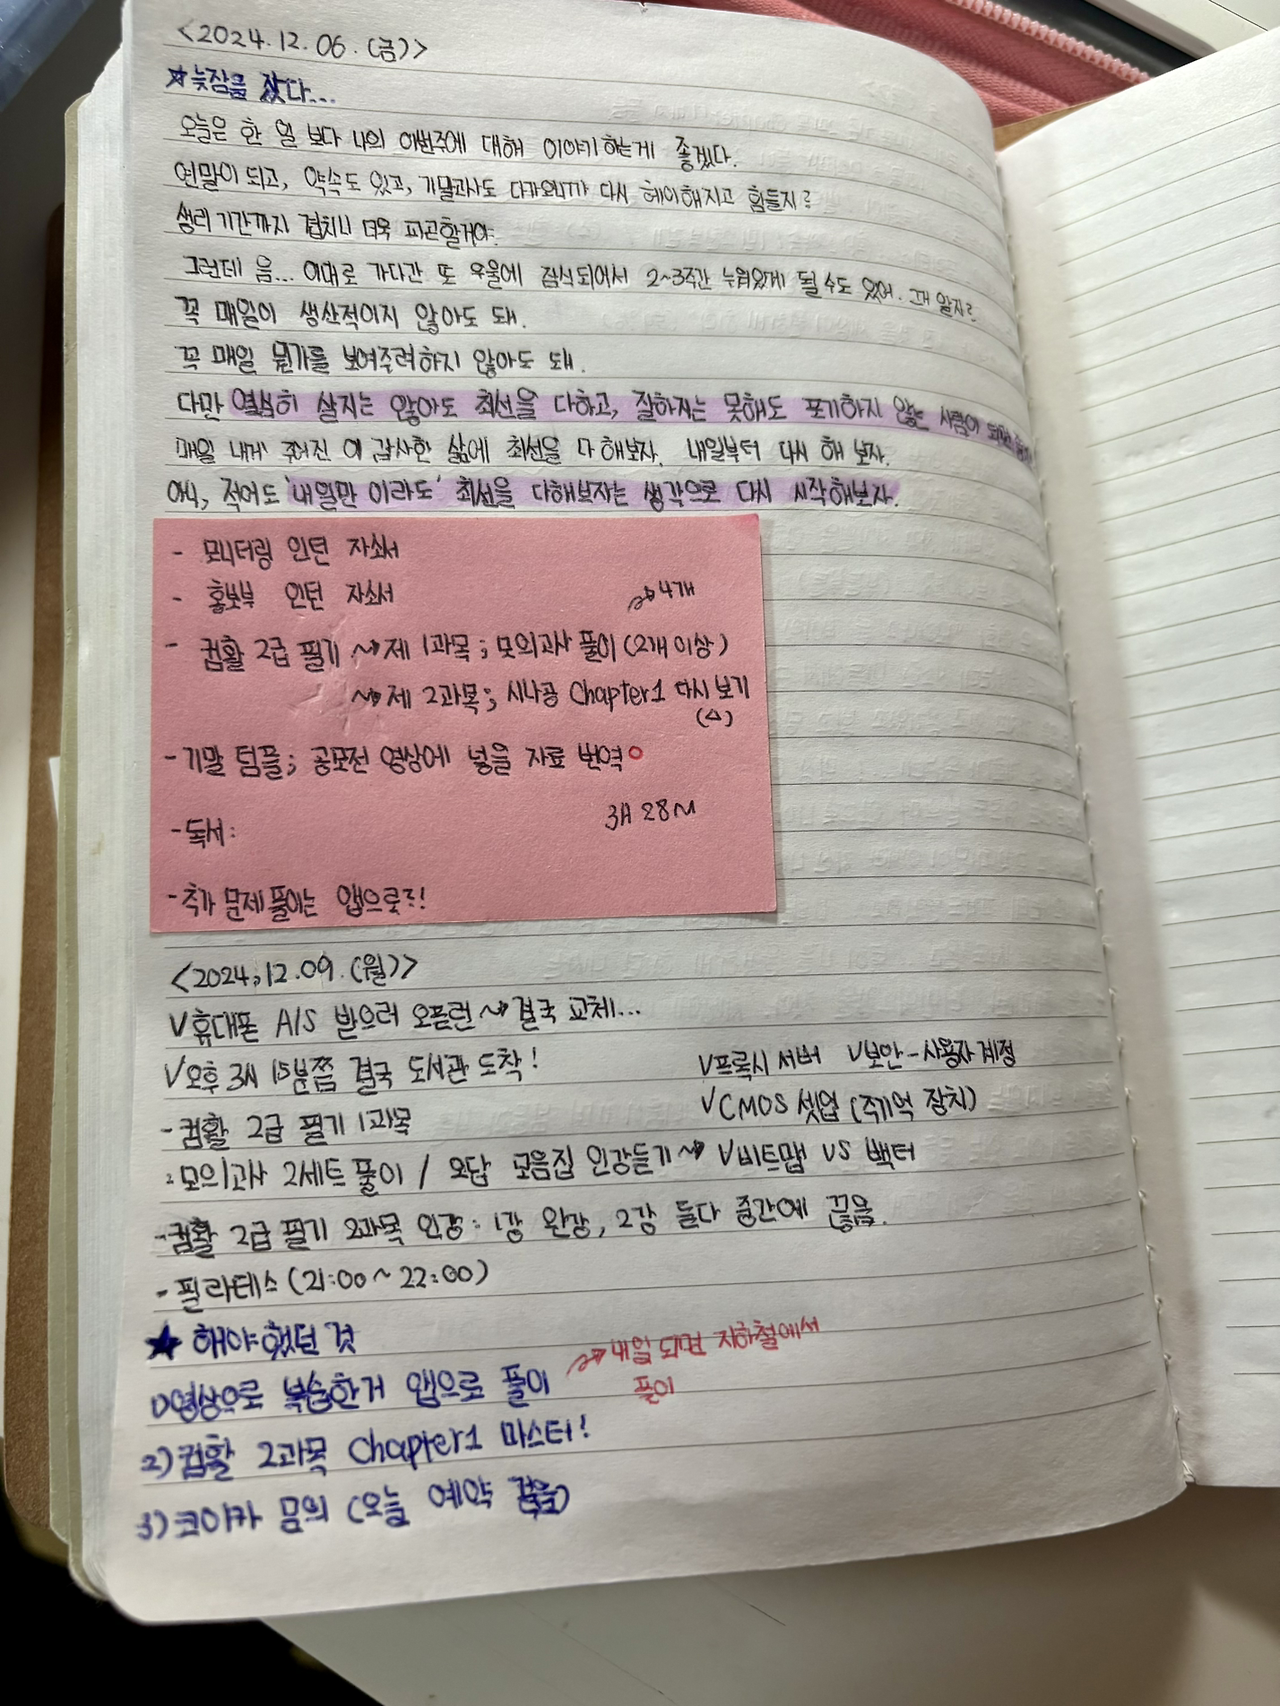 <2024.12.06.(금)>
★늦잠을 잤다...
오늘은 한 일 보다 나의 이번주에 대해 이야기 하는게 좋겠다.
연말이 되고, 약속도 있고, 기말고사도 다가오니까 다시 헤이해지고 힘들지?
생리기간까지 겹치니 더욱 피곤할거야.
그런데 음... 이대로 가다간 또 우울에 잠식되어서 2~3주간 누워있게 될 수도 있어. 그거 알지?
꼭 매일이 생산적이지 않아도 돼.
꼭 매일 뭔가를 보여주려하지 않아도 돼.
다만 열심히 살지는 않아도 최선을 다하고, 잘하지는 못해도 포기하지 않는 사람이
매일 내게 주어진 이 감사한 삶에 최선을 다 해보자. 내일부터 다시 해 보자.
아니, 적어도 '내일만 이라도' 최선을 다해보자는 생각으로 다시 시작해보자.
- 모니터링 인턴 자소서
- 홍보부 인턴 자소서
4개
- 컴활 2급 필기 ~> 제 1과목; 모의고사 풀이 (2개 이상)
~> 제 2과목; 시나공 Chapter1 다시보기
(△)
- 기말 텀플; 공모전 영상에 넣을 자료 번역 ○
3H 28M
- 독서:
- 추가 문제풀이는 앱으로!
<2024.12.09.(월)>
V 휴대폰 A/S 받으러 오픈런 ~> 결국 교체...
V 오후 3시 15분쯤 결국 도서관 도착!
V프록시 서버 V보안-사용자 계정
- 컴활 2급 필기 1과목
VCMOS 셋업 (주기억 장치)
: 모의고사 2세트 풀이 / 오답 모음집 인강듣기 ~> V비트맵 VS 백터
- 컴활 2급 필기 2과목 인강: 1강 완강, 2강 듣다 중간에 끊음.
- 필라테스 (21:00~22:00)
★ 해야했던 것
1) 영상으로 복습한거 앱으로 풀이
~> 내일 되면 지하철에서
풀이
2) 컴활 2과목 Chapter1 마스터!
3) 코이카 모의 (오늘 예약